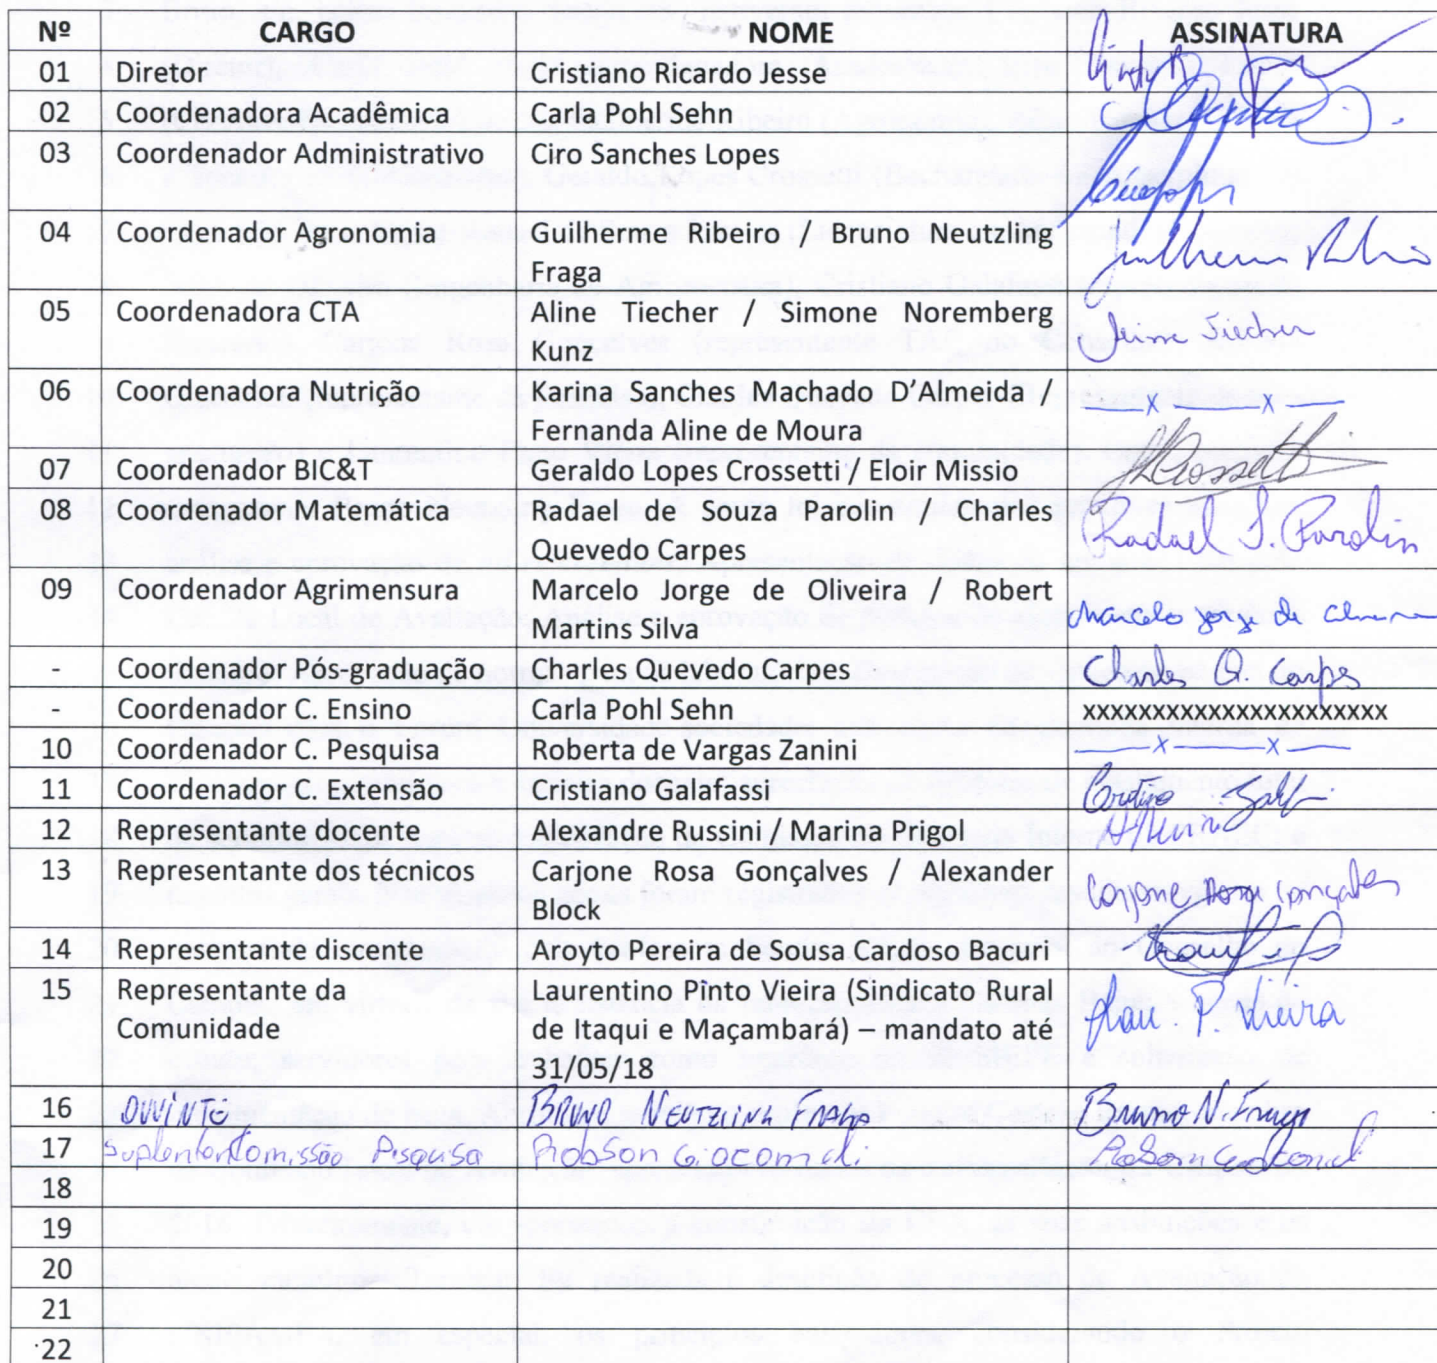 Nº CARGO NOME ASSINATURA
01 Diretor Cristiano Ricardo Jesse
02 Coordenadora Acadêmica Carla Pohl Sehn
03 Coordenador Administrativo Ciro Sanches Lopes
04 Coordenador Agronomia Guilherme Ribeiro / Bruno Neutzling
Fraga
05 Coordenadora CTA Aline Tiecher / Simone Noremberg
Kunz
Tiecher
06 Coordenadora Nutrição Karina Sanches Machado D'Almeida /
Fernanda Aline de Moura
x x
07 Coordenador BIC&T Geraldo Lopes Crossetti / Eloir Missio
08 Coordenador Matemática Radael de Souza Parolin / Charles
Quevedo Carpes
Radael S. Parolin
09 Coordenador Agrimensura Marcelo Jorge de Oliveira / Robert
Martins Silva
Marcelo Jorge de
- Coordenador Pós-graduação Charles Quevedo Carpes Charles Q. Carpes
- Coordenador C. Ensino Carla Pohl Sehn xxxxxxxxxxxxxxxxxxxxxx
10 Coordenador C. Pesquisa Roberta de Vargas Zanini x x
11 Coordenador C. Extensão Cristiano Galafassi
12 Representante docente Alexandre Russini / Marina Prigol
13 Representante dos técnicos Carjone Rosa Gonçalves / Alexander
Block
Carjone Rosa Gonçalves
14 Representante discente Aroyto Pereira de Sousa Cardoso Bacuri
15 Representante da Laurentino Pinto Vieira (Sindicato Rural
Comunidade de Itaqui e Maçambará) – mandato até
31/05/18
Lau. P. Vieira
16 OUVINTE BRUNO NEUTZLING FRAGA Bruno N. Fraga
17 Suplente Comissão Pisquisa Robson Giacomeli Robson Giacomeli
18
19
20
21
22